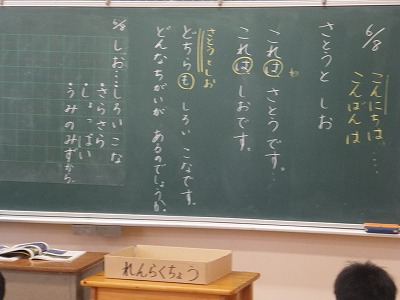 6/8
こんにちは、…
こんばんは
さとうと しお
これは さとうです。
わ
これは しおです。
さとうとしお
どちらも しろい こなです。
どんなちがいが あるのでしょうか。
6/8
しお…しろいこな
さらさら
しょっぱい
うみのみずから
れんらくちょう